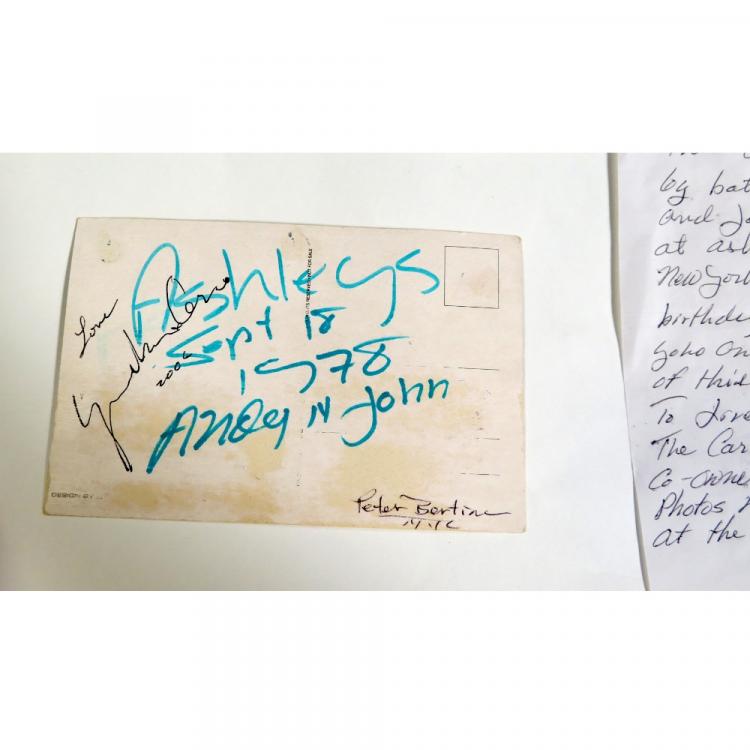 Ashleys
Sept 18
1978
Andy N John
Love
2006
DESIGN BY
Peter Bertine
N.Y.C
by bat
and Jo
at ash
New York
birthda
Yoko On
of this
To Love
The Car
Co-owne
Photos
at the